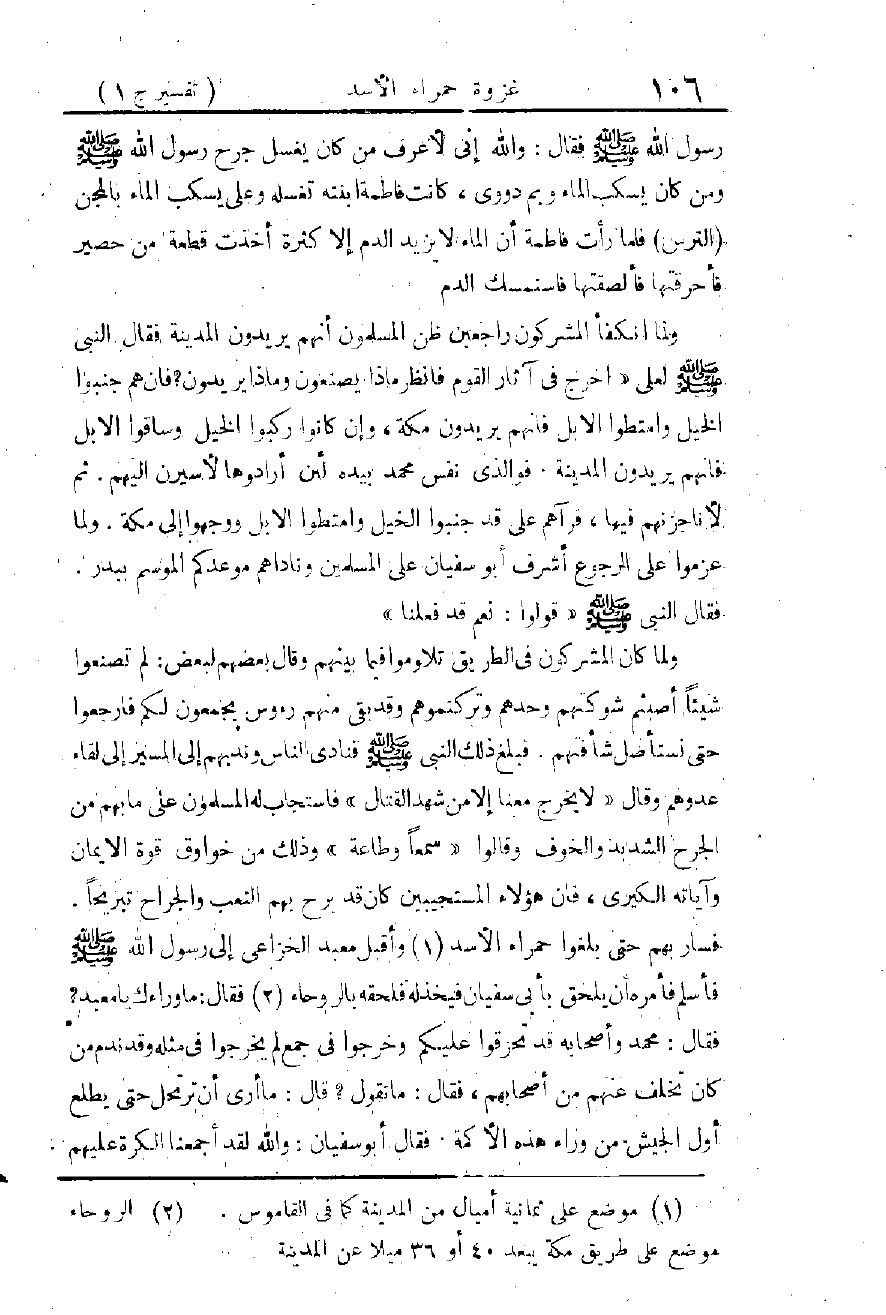 ١٠٦ غزوة حمراء الأسد (تفسير ج ١)
رسول الله ﷺ فقال : والله إنى لأعرف من كان يغسل جرح رسول الله ﷺ
ومن كان يسكب الماء وبم دووى ، كانت فاطمة ابنته تغسله وعلى يسكب الماء بالمجن
(الترس) فلما رأت فاطمة أن الماء لا يزيد الدم إلا كثرة أخذت قطعة من حصير
فأحرقتها فألصقتها فاستمسك الدم
ولما انكفأ المشركون راجعين ظن المسلمون أنهم يريدون المدينة فقال النبى
ﷺ لعلى « اخرج فى آثار القوم فانظر ماذا يصنعون وماذا يريدون؟ فان هم جنبوا
الخيل وامتطوا الابل فانهم يريدون مكة ، وإن كانوا ركبوا الخيل وساقوا الابل
فانهم يريدون المدينة . فوالذى نفس محمد بيده لئن أرادوها لأسيرن اليهم . ثم
لأناجزنهم فيها ، فرآهم على قد جنبوا الخيل وامتطوا الابل ووجهوا إلى مكة . ولما
عزموا على الرجوع أشرف أبو سفيان على المسلمين وناداهم موعدكم الموسم ببدر .
فقال النبى ﷺ « قولوا : نعم قد فعلنا »
ولما كان المشركون فى الطريق تلاوموا فيما بينهم وقال بعضهم لبعض : لم تصنعوا
شيئاً أصبتم شوكتهم وحدهم وتركتموهم وقد بقى منهم رءوس يجمعون لكم فارجعوا
حتى نستأصل شأفتهم . فبلغ ذلك النبى ﷺ فنادى الناس وندبهم إلى المسير إلى لقاء
عدوهم وقال « لا يخرج معنا إلا من شهد القتال » فاستجاب له المسلمون على ما بهم من
الجرح الشديد والخوف وقالوا « سمعاً وطاعة » وذلك من خوارق قوة الايمان
وآياته الكبرى ، فان هؤلاء المستجيبين كان قد برح بهم التعب والجراح تبريحاً .
فسار بهم حتى بلغوا حمراء الأسد (١) وأقبل معبد الخزاعى إلى رسول الله ﷺ
فأسلم فأمره أن يلحق بأبى سفيان فيخذله فلحقه بالروحاء (٢) فقال : ماوراءك يا معبد؟
فقال : محمد وأصحابه قد تحرقوا عليكم وخرجوا فى جمع لم يخرجوا فى مثله وقد ندم من
كان تخلف عنهم من أصحابهم ، فقال : ماتقول ؟ قال : ماأرى أن ترتحل حتى يطلع
أول الجيش من وراء هذه الأكمة . فقال أبو سفيان : والله لقد أجمعنا الكرة عليهم
(١) موضع على ثمانية أميال من المدينة كما فى القاموس . (٢) الروحاء
موضع على طريق مكة يبعد ٤٠ أو ٣٦ ميلا عن المدينة